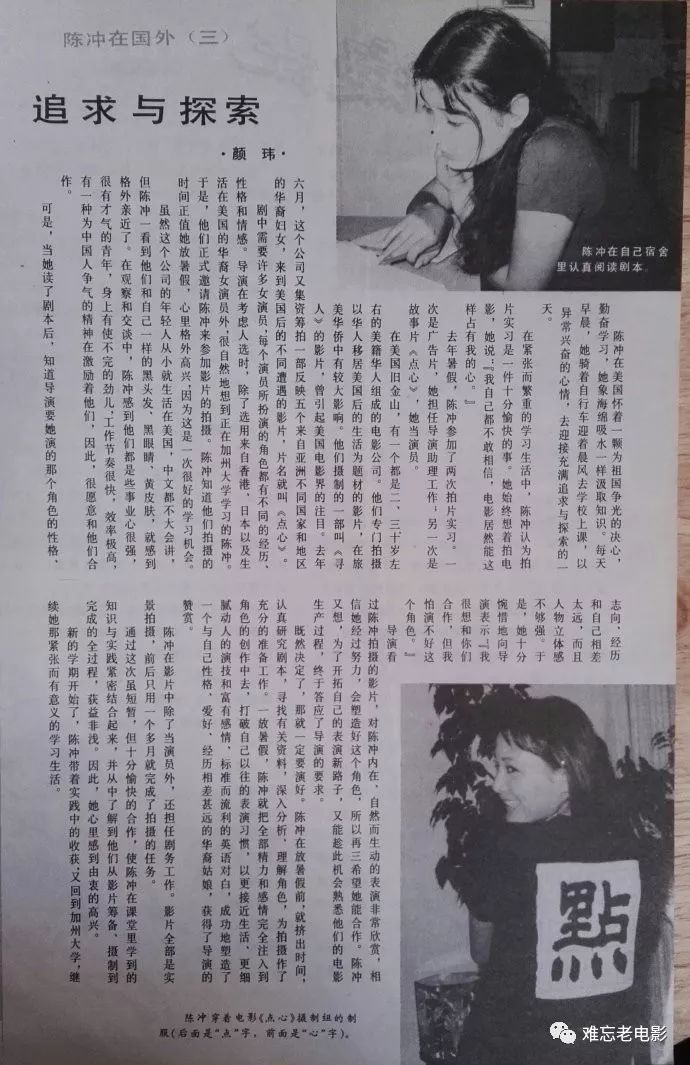 陈冲在国外（三）
追求与探索
·颜 玮·
陈冲在自己宿舍
里认真阅读剧本。
陈冲在美国怀着一颗为祖国争光的决心，
勤奋学习，她象海绵吸水一样汲取知识。每天
早晨，她骑着自行车迎着晨风去学校上课，以
异常兴奋的心情，去迎接充满追求与探索的一
天。
在紧张而繁重的学习生活中，陈冲认为拍
片实习是一件十分愉快的事。她始终想着拍电
影，她说：『我自己都不敢相信，电影居然能这
样占有我的心。』
去年暑假，陈冲参加了两次拍片实习。一
次是广告片，她担任导演助理工作；另一次是
故事片《点心》，她当演员。
在美国旧金山，有一个都是二、三十岁左
右的美籍华人组成的电影公司。他们专门拍摄
以华人移居美国后的生活为题材的影片，在旅
美华侨中有较大影响。他们摄制的一部叫《寻
人》的影片，曾引起美国电影界的注目。去年
六月，这个公司又集资筹拍一部反映五个来自亚洲不同国家和地区
的华裔妇女，来到美国后的不同遭遇的影片，片名就叫《点心》。
剧中需要许多女演员，每个演员所扮演的角色都有不同的经历、
性格和情感。导演在考虑人选时，除了选用来自香港、日本以及生
活在美国的华裔女演员外，很自然地想到正在加州大学学习的陈冲。
于是，他们正式邀请陈冲来参加影片的拍摄。陈冲知道他们拍摄的
时间正值她放暑假，心里格外高兴，因为这是一次很好的学习机会。
虽然这个公司的年轻人从小就生活在美国，中文都不大会讲，
但陈冲一看到他们和自己一样的黑头发、黑眼睛、黄皮肤，就感到
格外亲近了。在观察和交谈中，陈冲感到他们都是些事业心很强，
很有才气的青年，身上有使不完的劲儿，工作节奏很快，效率极高，
有一种为中国人争气的精神在激励着他们，因此，很愿意和他们合
作。
可是，当她读了剧本后，知道导演要她演的那个角色的性格、
志向、经历
和自己相差
太远，而且
人物立体感
不够强。于
是，她十分
惋惜地向导
演表示『我
很想和你们
合作，但我
怕演不好这
个角色。』
导演看
过陈冲拍摄的影片，对陈冲内在、自然而生动的表演非常欣赏，相
信她经过努力，会塑造好这个角色，所以再三希望她能合作。陈冲
又想，为了开拓自己的表演新路子，又能趁此机会熟悉他们的电影
生产过程，终于答应了导演的要求。
既然决定了，那就一定要演好。陈冲在放暑假前，就挤出时间，
认真研究剧本，寻找有关资料，深入分析、理解角色，为拍摄作了
充分的准备工作。一放暑假，陈冲就把全部精力和感情完全注入到
角色的创作中去，打破自己以往的表演习惯，以更接近生活、更细
腻动人的演技和富有感情、标准而流利的英语对白，成功地塑造了
一个与自己性格、爱好、经历相差甚远的华裔姑娘，获得了导演的
赞赏。
陈冲在影片中除了当演员外，还担任剧务工作。影片全部是实
景拍摄，前后只用一个多月就完成了拍摄的任务。
通过这次虽短暂，但十分愉快的合作，使陈冲在课堂里学到的
知识与实践紧密结合起来，并从中了解到他们从影片筹备、摄制到
完成的全过程，获益非浅。因此，她心里感到由衷的高兴。
新的学期开始了，陈冲带着实践中的收获，又回到加州大学，继
续她那紧张而有意义的学习生活。
點
陈冲穿着电影《点心》摄制组的制
服（后面是“点”字，前面是“心”字）。
难忘老电影